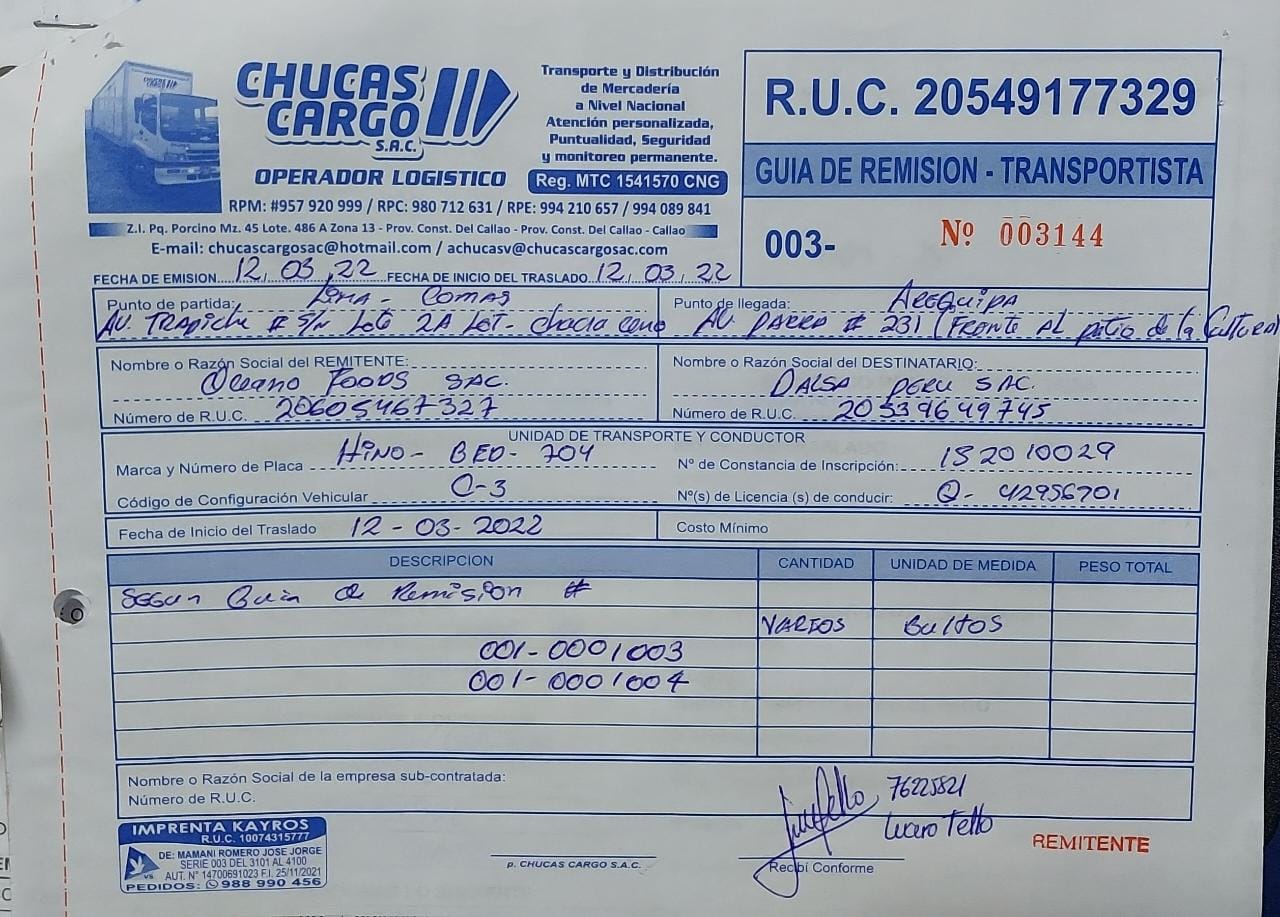 CHUCAS
CARGO
S.A.C.
OPERADOR LOGISTICO
Transporte y Distribución
de Mercadería
a Nivel Nacional
Atención personalizada,
Puntualidad, Seguridad
y monitoreo permanente.
Reg. MTC 1541570 CNG
RPM: #957 920 999 / RPC: 980 712 631 / RPE: 994 210 657 / 994 089 841
Z.I. Pq. Porcino Mz. 45 Lote. 486 A Zona 13 - Prov. Const. Del Callao - Prov. Const. Del Callao - Callao
E-mail: chucascargosac@hotmail.com / achucasv@chucascargosac.com
R.U.C. 20549177329
GUIA DE REMISION - TRANSPORTISTA
003- Nº 003144
FECHA DE EMISION 12, 03, 22 FECHA DE INICIO DEL TRASLADO 12, 03, 22
Punto de partida: Lima - Comas
AV. Trapiche # S/N Lote 2A Lot. chacra
Punto de llegada: Arequipa
AV. PARRA # 231 (Frente AL patio de la Cultura)
Nombre o Razón Social del REMITENTE:
Oceano Foods SAC.
Número de R.U.C. 20605467327
Nombre o Razón Social del DESTINATARIO:
DALSA PERU SAC.
Número de R.U.C. 20539649745
UNIDAD DE TRANSPORTE Y CONDUCTOR
Marca y Número de Placa HINO - BED - 704
Nº de Constancia de Inscripción: 152010029
Código de Configuración Vehicular C-3
Nº(s) de Licencia (s) de conducir: Q- 42956701
Fecha de Inicio del Traslado 12 - 03 - 2022
Costo Mínimo
DESCRIPCION CANTIDAD UNIDAD DE MEDIDA PESO TOTAL
Segun Guia de Remision #
VARIOS Bultos
001-0001003
001-0001004
Nombre o Razón Social de la empresa sub-contratada:
Número de R.U.C.
76225821
Tello
REMITENTE
IMPRENTA KAYROS
R.U.C. 10074315777
DE: MAMANI ROMERO JOSE JORGE
SERIE 003 DEL 3101 AL 4100
AUT. Nº 14700691023 F.I. 25/11/2021
PEDIDOS: 988 990 456
p. CHUCAS CARGO S.A.C.
Recibí Conforme